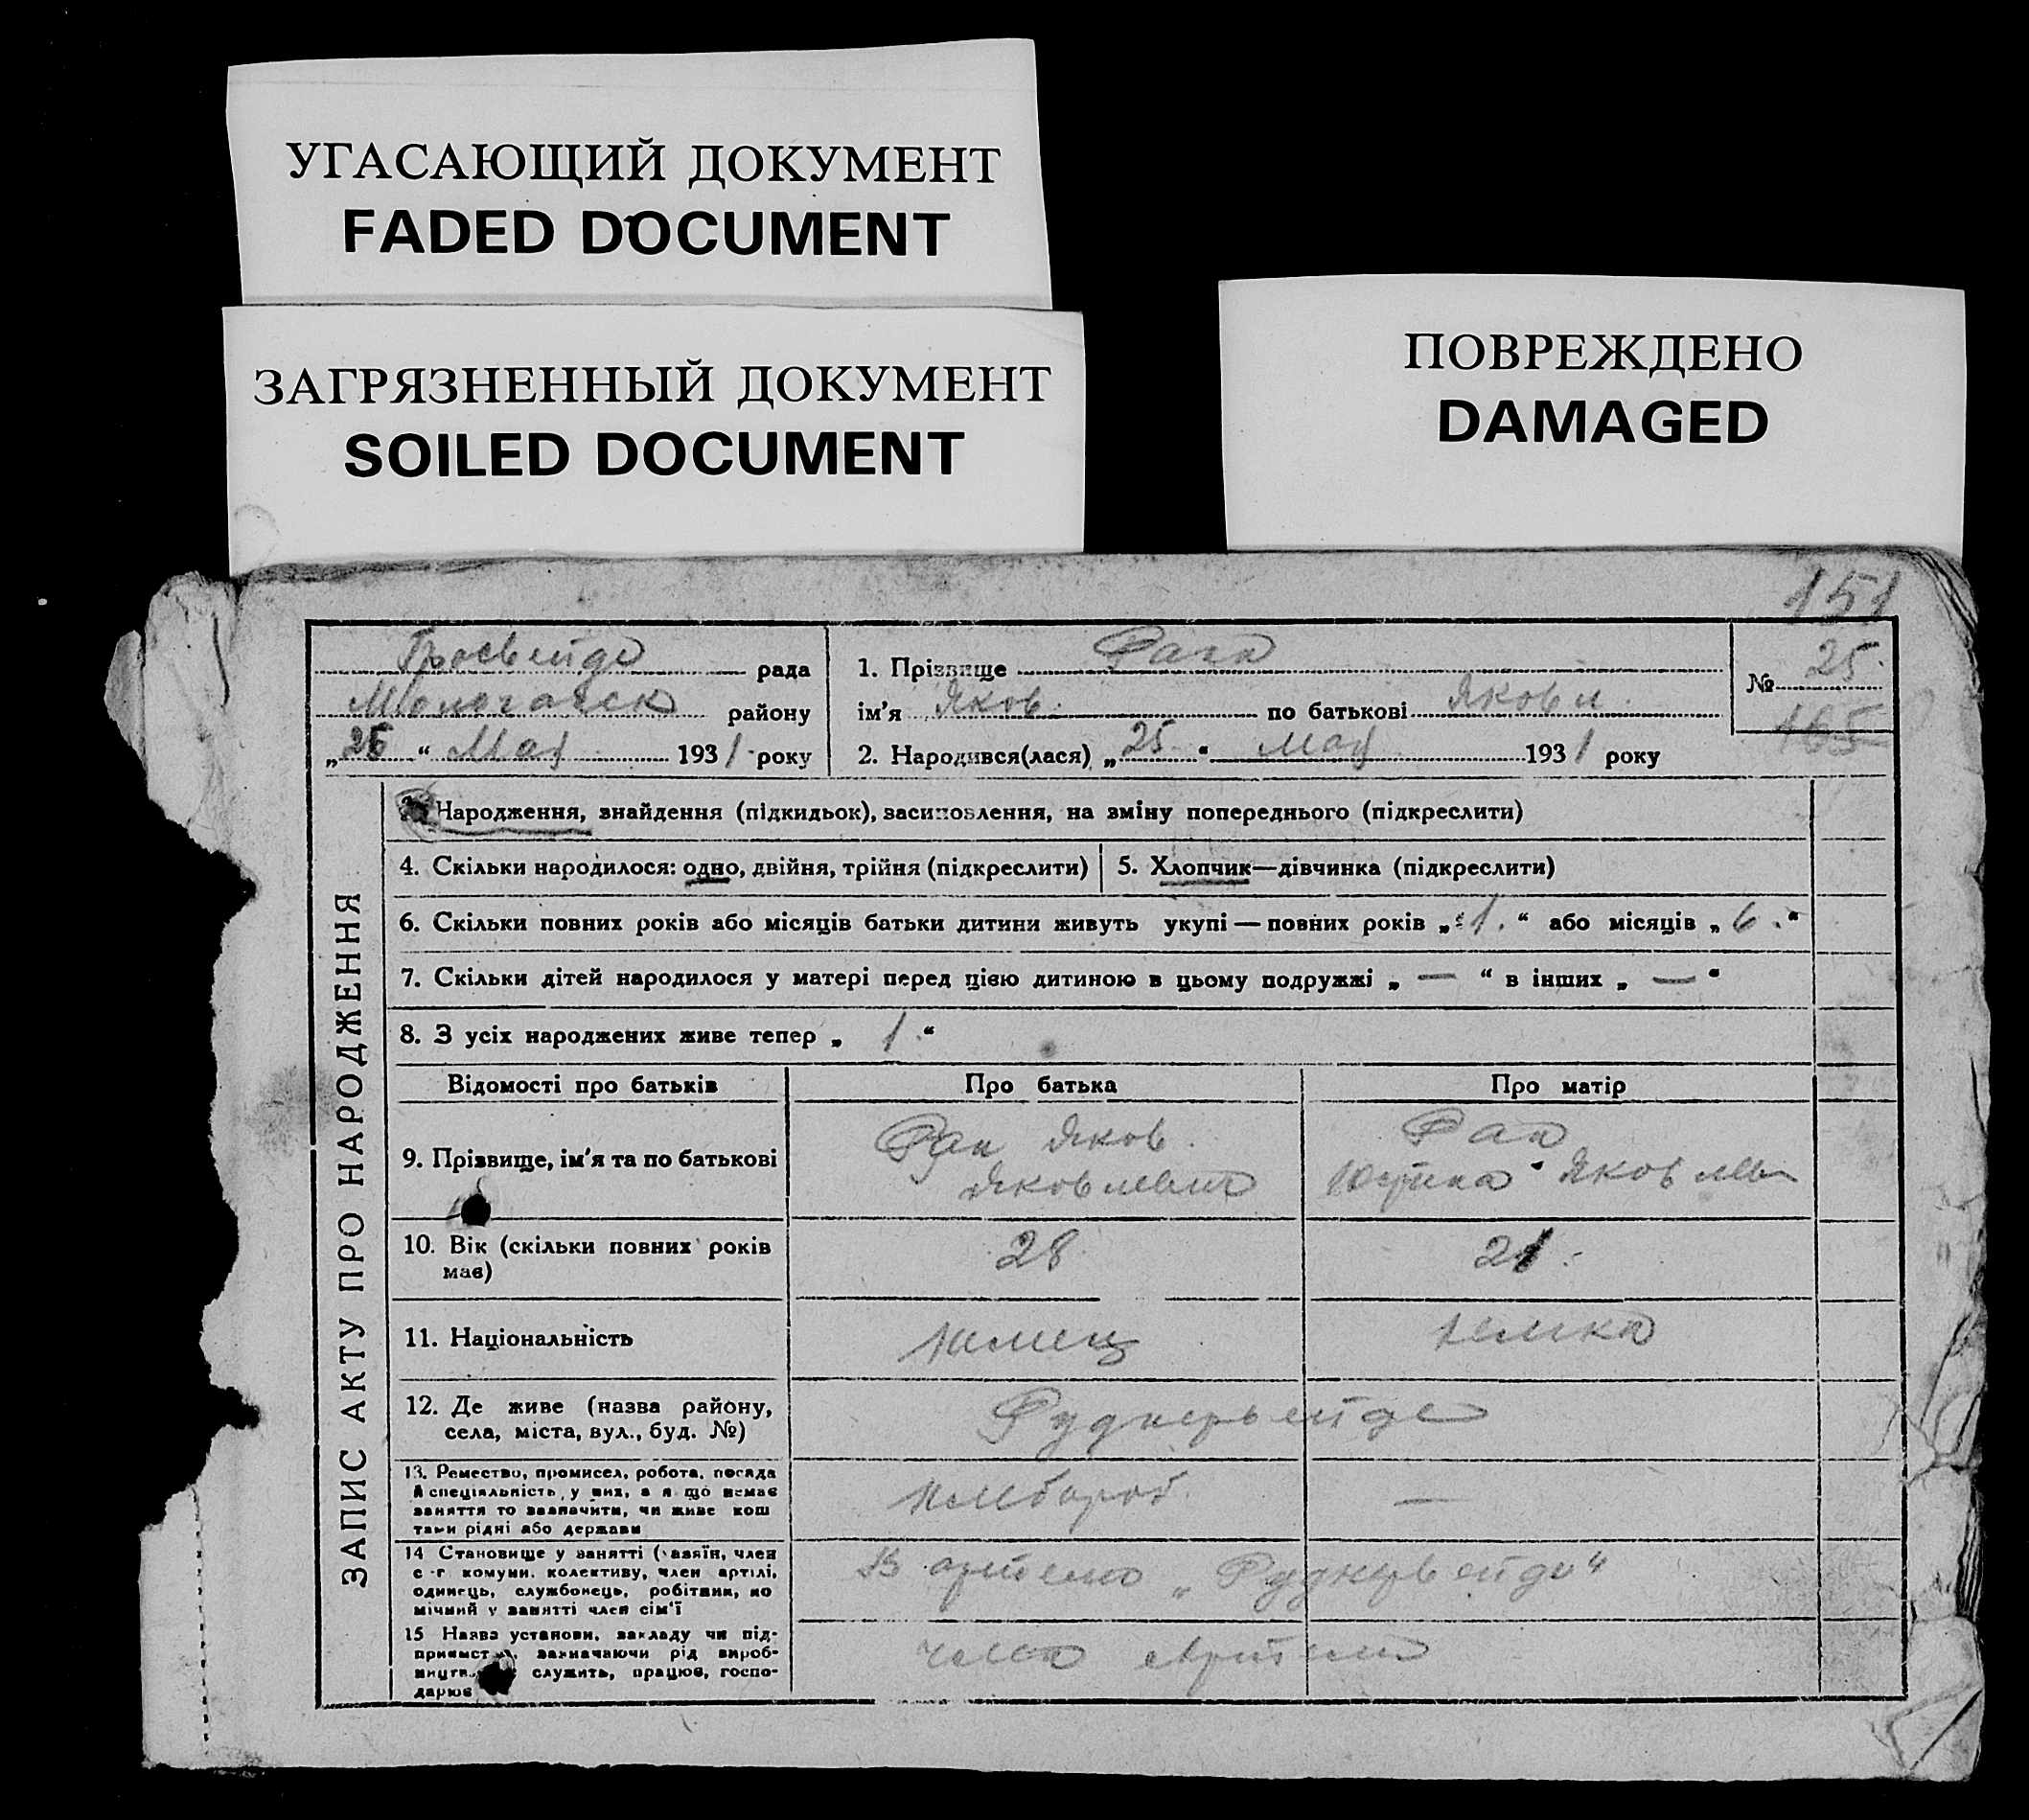 УГАСАЮЩИЙ ДОКУМЕНТ
FADED DOCUMENT
ЗАГРЯЗНЕННЫЙ ДОКУМЕНТ
SOILED DOCUMENT
ПОВРЕЖДЕНО
DAMAGED
151
рада
району
„26“ Мая 1931 року
1. Прізвище
ім'я Яков по батькові Яковл.
2. Народився(лася) „25“ Мая 1931 року
№ 25.
165
ЗАПИС АКТУ ПРО НАРОДЖЕННЯ
Народження, знайдення (підкидьок), засиновлення, на зміну попереднього (підкреслити)
4. Скільки народилося: одно, двійня, трійня (підкреслити)
5. Хлопчик—дівчинка (підкреслити)
6. Скільки повних років або місяців батьки дитини живуть укупі — повних років „1.“ або місяців „6.“
7. Скільки дітей народилося у матері перед цією дитиною в цьому подружжі „—“ в інших „—“
8. З усіх народжених живе тепер „1.“
Відомості про батьків
Про батька
Про матір
9. Прізвище, ім'я та по батькові
Яков
Яковлевич
Юстина Яковлев
10. Вік (скільки повних років
має)
28
21.
11. Національність
немец
немка
12. Де живе (назва району,
села, міста, вул., буд. №)
Рудкервейде
13. Ремество, промисел, робота, посада
й спеціяльність у них, а я що немає
заняття то зазначити, чи живе кош
тами рідні або держави
—
14 Становище у занятті (хазяїн, член
с-г комуни, колективу, член артілі,
одинець, службовець, робітник, по
мічний у занятті член сім'ї
В артели „Рудкервейде“
15 Назва установи, закладу чи під-
приємст зазначаючи рід вироб-
ництв служить, працює, госпо-
дарює
член Артели